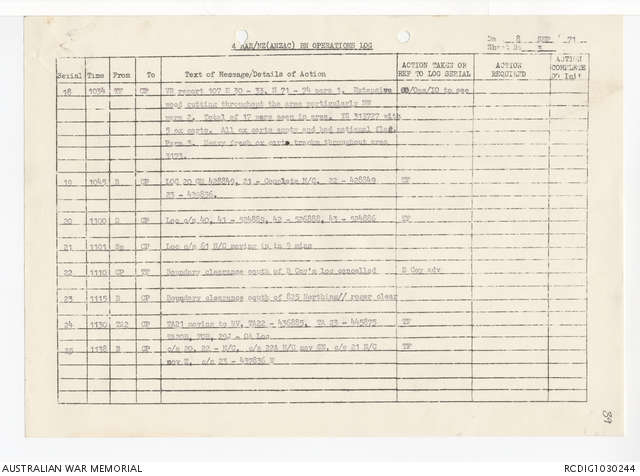 4 RAR/NZ(ANZAC) BN OPERATIONS LOG
8 SEP 71
Sheet No 3
Serial Time From To Text of Message/Details of Action ACTION TAKEN OR REF TO LOG SERIAL ACTION REQUIRED ACTION COMPLETE Init
18 1034 TF CP VR report 107 H 30 - 33, H 71 - 74 para 1. Extensive CO/Ops/IO to see
wood cutting throughout the area particularly
para 2. Total of 17 seen in area. YS 312727 with
5 ox carts. All ox carts empty and had national flag.
Para 3. Heavy fresh ox cart tracks throughout area
3173.
19 1045 B CP LOC 20 428849, 21 - Complete N/C. 22 - 428849 TF
23 - 436836.
20 1100 D CP Loc c/s 40, 41 - 524885, 42 - 526888, 43 - 524886 TF
21 1101 Sp CP Loc c/s 61 N/C moving in in 5 mins
22 1110 CP TF Boundary clearance south of D Coy's loc cancelled D Coy adv
23 1115 B CP Boundary clearance south of 825 Northing// roger clear
24 1130 TA2 CP TA21 moving to RV, TA22 - 436885, TA 23 - 445875 TF
- OA Loc
25 1138 B CP c/s 20, 22 - N/C. c/s 22A N/C mov c/s 21 N/C TF
mov c/s 23 - 437836
89
AUSTRALIAN WAR MEMORIAL RCDIG1030244